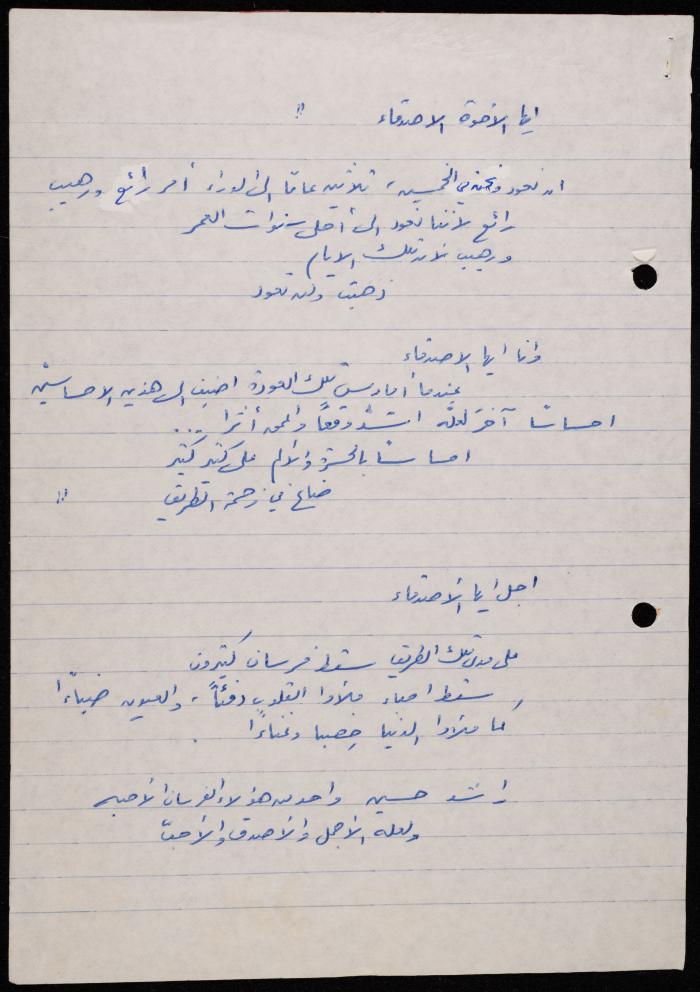 ايها الاخوة الاصدقاء !!
ان نعود ونحن في الخمسين، ثلاثين عامًا الى الوراء أمر رائع ورهيب
رائع لأننا نعود الى أحلى سنوات العمر
ورهيب لان تلك الايام
ذهبت ولن تعود
وأنا ايها الاصدقاء
عندما أمارس تلك العودة اضيف الى هذين الاحساسين
احساسًا آخر لعله اشد وقعًا وأعمق أثرا ...
احساسًا بالحسرة والألم على كثير كثير
ضاع في زحمة الطريق !!
اجل ايها الأصدقاء
على مدى تلك الطريق سقط فرسان كثيرون
سقط احباء ملأوا القلوب دفئًا، والعيون ضياءًا
كما ملأوا الدنيا خصبا وغناءًا .
راشد حسين واحد من هؤلاء الفرسان الأحبه
ولعله الأجمل والأصدق والأحبّ